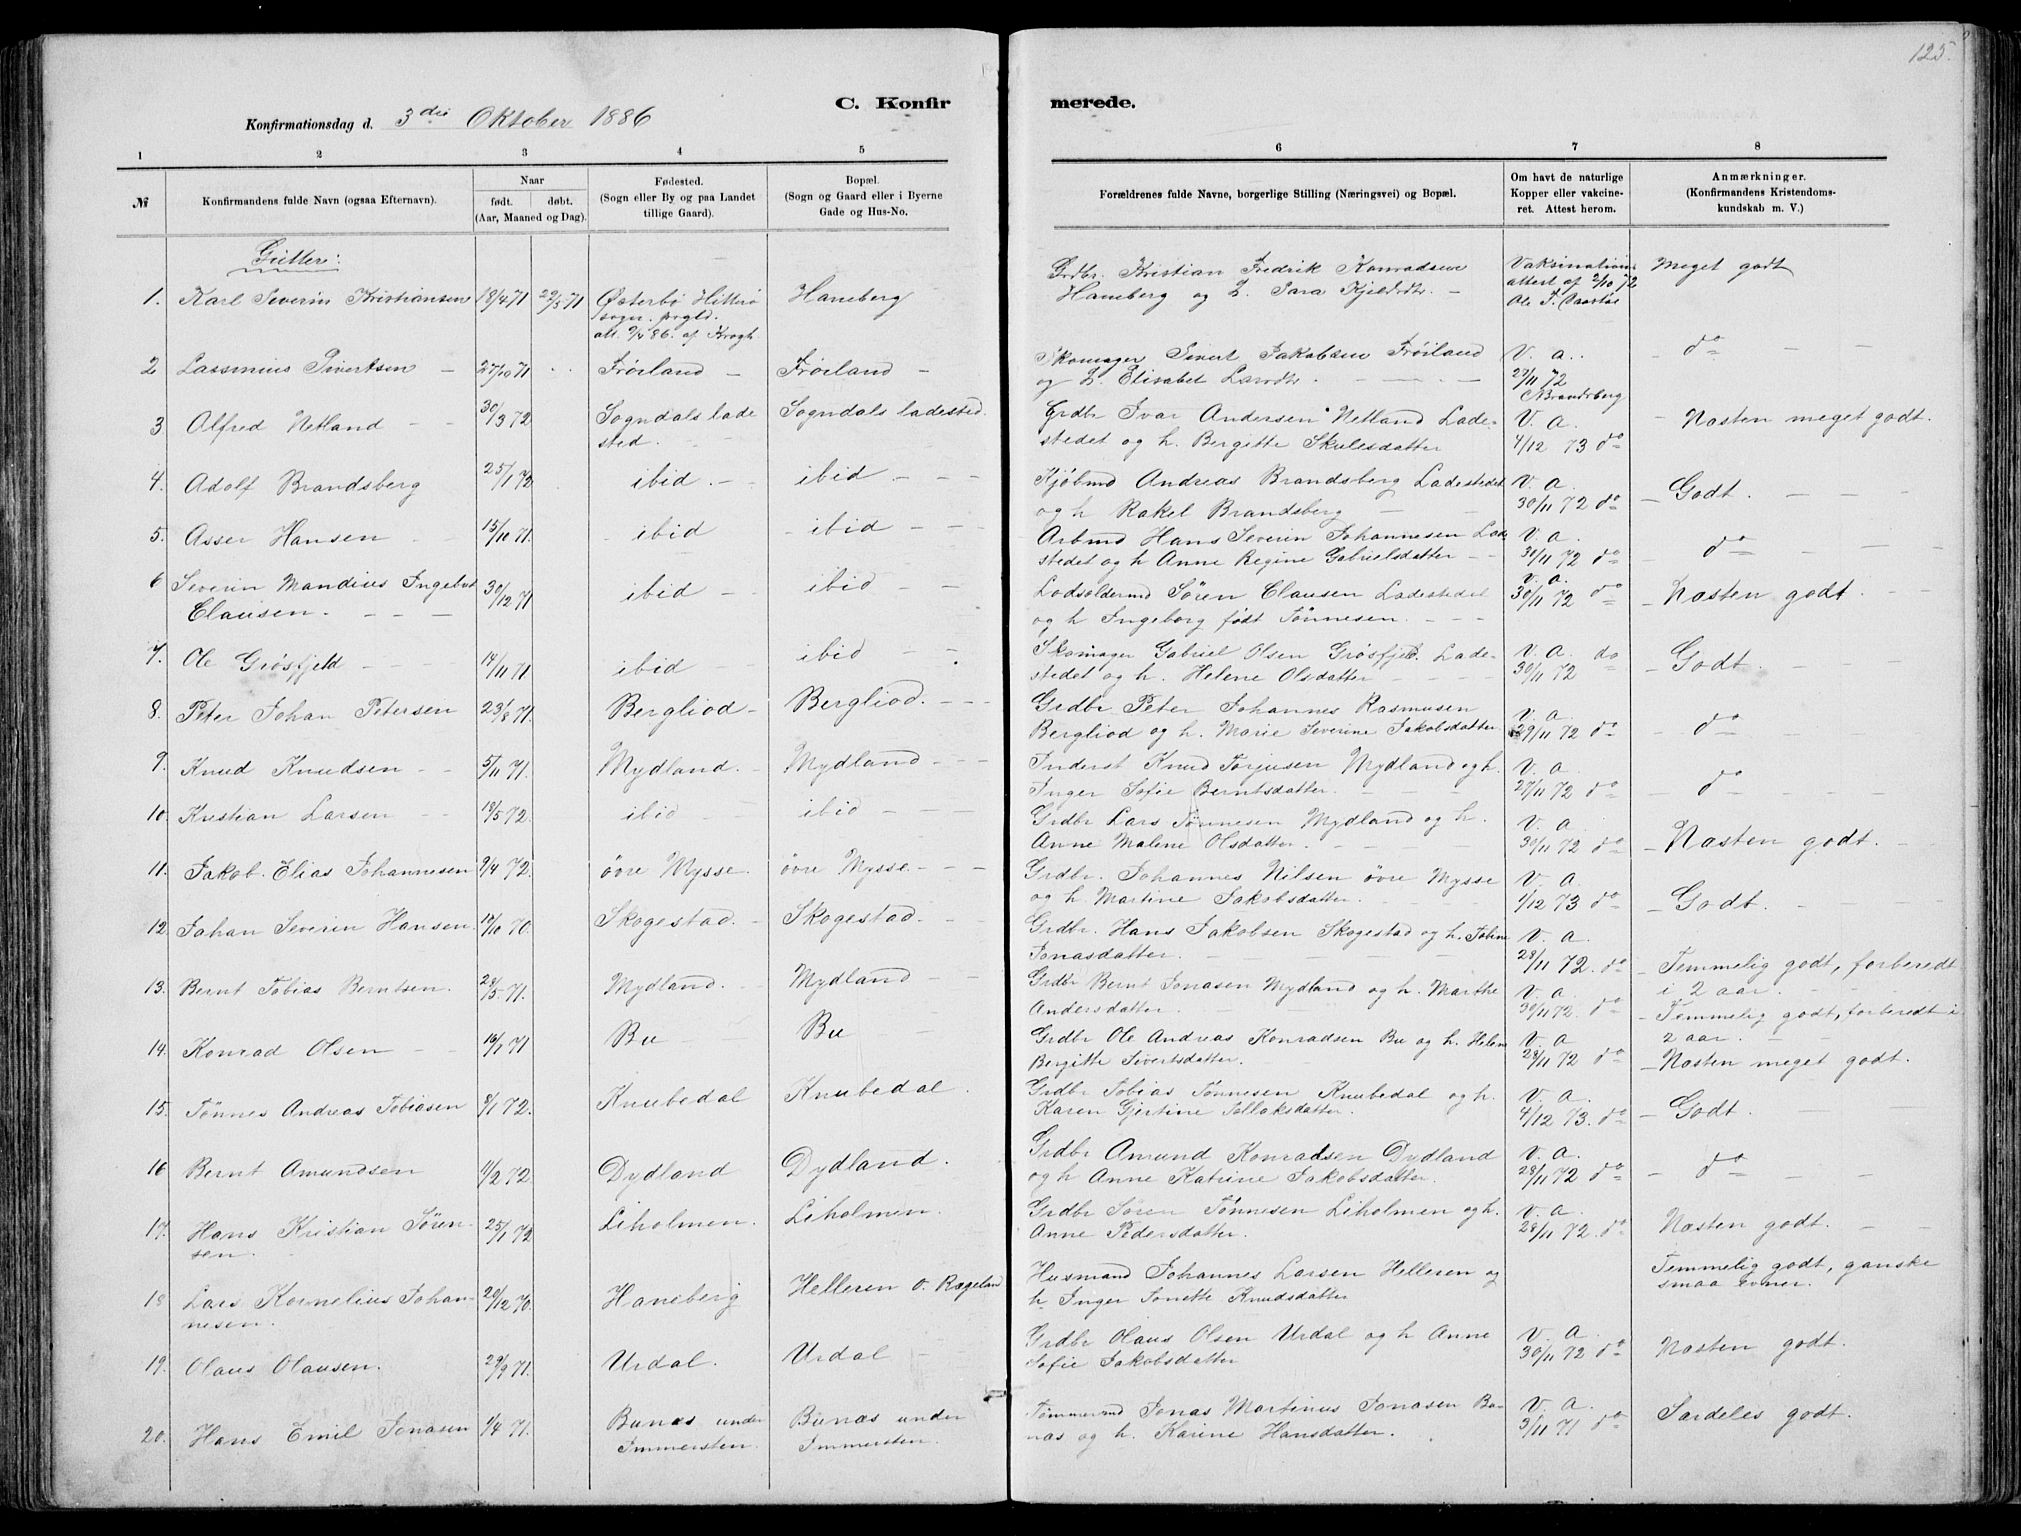 125.
C. Konfirmerede.
Konfirmationsdag d. 3die Oktober 1886
1 2 3 4 5 6 7 8
№ Konfirmandens fulde Navn (ogsaa Efternavn). Naar født. døbt. (Aar, Maaned og Dag). Fødested. (Sogn eller By og paa Landet tillige Gaard). Bopæl. (Sogn og Gaard eller i Byerne Gade og Hus-No. Forældrenes fulde Navne, borgerlige Stilling (Næringsvei) og Bopæl. Om havt de naturlige Kopper eller vakcineret. Attest herom. Anmærkninger. (Konfirmandens Kristendomskundskab m. V.)
Gutter:
1. Karl Severin Kristiansen 18/4 71 29/5 71 Østerbø Hitterø sogn. prgld. att. 9/4 86. af Krogh Haneberg Grdbr. Kristian Fredrik Konradsen
Haneberg og h. Sara Kjeldsdtr. Vaksinations attest af 2/10 72 Meget godt
2 Lassmius Sivertsen 27/10 71 Frøiland Frøiland Skomager Sivert Jakobsen Frøiland
og h. Elisabet Larsdtr. V. a. 27/11 72 Brandsberg do
3 Alfred Netland 30/3 72 Sogndals ladested. Sogndals ladested. Grdbr Ivar Andersen Netland Lade-
stedet og h. Bergitte Skulesdatter V. a. 4/12 73 do Næsten meget godt.
4. Adolf Brandsberg 25/1 72 ibid ibid Kjøbmd Andreas Brandsberg Ladestedet
og h Rakel Brandsberg V. a. 30/11 72 do Godt.
5. Asser Hansen 15/10 71. ibid ibid Arbmd Hans Severin Johannesen Lade
stedet og h Anne Regine Gabrielsdatter V. a. 30/11 72 do do
6 Severin Mandius Ingebret
Clausen. 30/12 71 ibid ibid Lodsoldermd Søren Clausen Ladestedet
og h Ingeborg født Tønnesen. V. a. 30/11 72 do Næsten godt.
7. Ole Grøsfjeld 14/11 71 ibid ibid Skomager Gabriel Olsen Grøsfjeld. Lade-
stedet og h. Helene Olsdatter V. a. do 30/11 72 Godt.
8. Peter Johan Petersen 23/8 71. Bergliod Bergliod. Grdbr Peter Johannes Rasmusen
Bergliod og h. Marie Severine Jakobsdatter V. a. 29/11 72 do do
9. Knud Knudsen 5/11 71. Mydland. Mydland Inderst Knud Torjusen Mydland og h.
Inger Sofie Berntsdatter. V. a. 27/11 72 do do
10. Kristian Larsen 18/5 72. ibid ibid Grdbr Lars Tønnesen Mydland og h.
Anne Malene Olsdatter. V. a. 30/11 72 do Næsten godt.
11. Jakob Elias Johannesen 9/4 72. øvre Mysse. øvre Mysse. Grdbr. Johannes Nilsen øvre Mysse
og h Martine Jakobsdatter. V. a. 1/12 73 do Godt.
12 Johan Severin Hansen 12/10 70. Skogestad. Skogestad. Grdbr. Hans Jakobsen Skogestad og h. Tobine
Jonasdatter. V. a. 28/11 72. do Temmelig godt, forberedt
i 2 aar.
13. Bernt Tobias Berntsen. 28/5 71. Mydland. Mydland Grdbr Bernt Jonasen Mydland og h. Marthe
Andersdatter. V. a. 30/11 72. do Temmelig godt, forberedt i
2 aar.
14. Konrad Olsen 16/1 71 Bu Bu Grdbr Ole Andreas Konradsen Bu og h. Helene
Bergitte Sivertsdatter. V. a 28/11 72 do Næsten meget godt.
15. Tønnes Andreas Tobiasen 8/1 72. Knubedal Knubedal. Grdbr Tobias Tønnesen Knubedal og h.
Karen Gjertine Tollaksdatter. V. a. 4/12 73. do Godt.
16 Bernt Amundsen 11/2 72. Dydland Dydland. Grdbr Amund Konradsen Dydland
og h Anne Katrine Jakobsdatter. V. a. 28/11 72 do do
17. Hans Kristian Søren-
sen. 25/1 72 Liholmen. Liholmen. Grdbr Søren Tønnesen Liholmen og h.
Anne Pedersdatter. V. a. 28/11 72. do Næsten godt.
18 Lars Kornelius Johan-
nesen. 20/12 70. Haneberg Helleren o. Rægeland Husmand Johannes Larsen Helleren og
h. Inger Tonette Knudsdatter Temmelig godt, ganske
smaa evner.
19. Olaus Olausen. 29/9 71. Urdal. Urdal Grdbr Olaus Olsen Urdal og h Anne
Sofie Jakobsdatter V. a. 30/11 72 do Næsten godt.
20. Hans Emil Jonasen 1/4 71. Bunæs under
Immersten. Bunæs under
Immersten. Tømmermd Jonas Martinus Jonasen Bu-
næs og h. Karine Hansdatter. V. a. 3/11 71 do Særdeles godt.